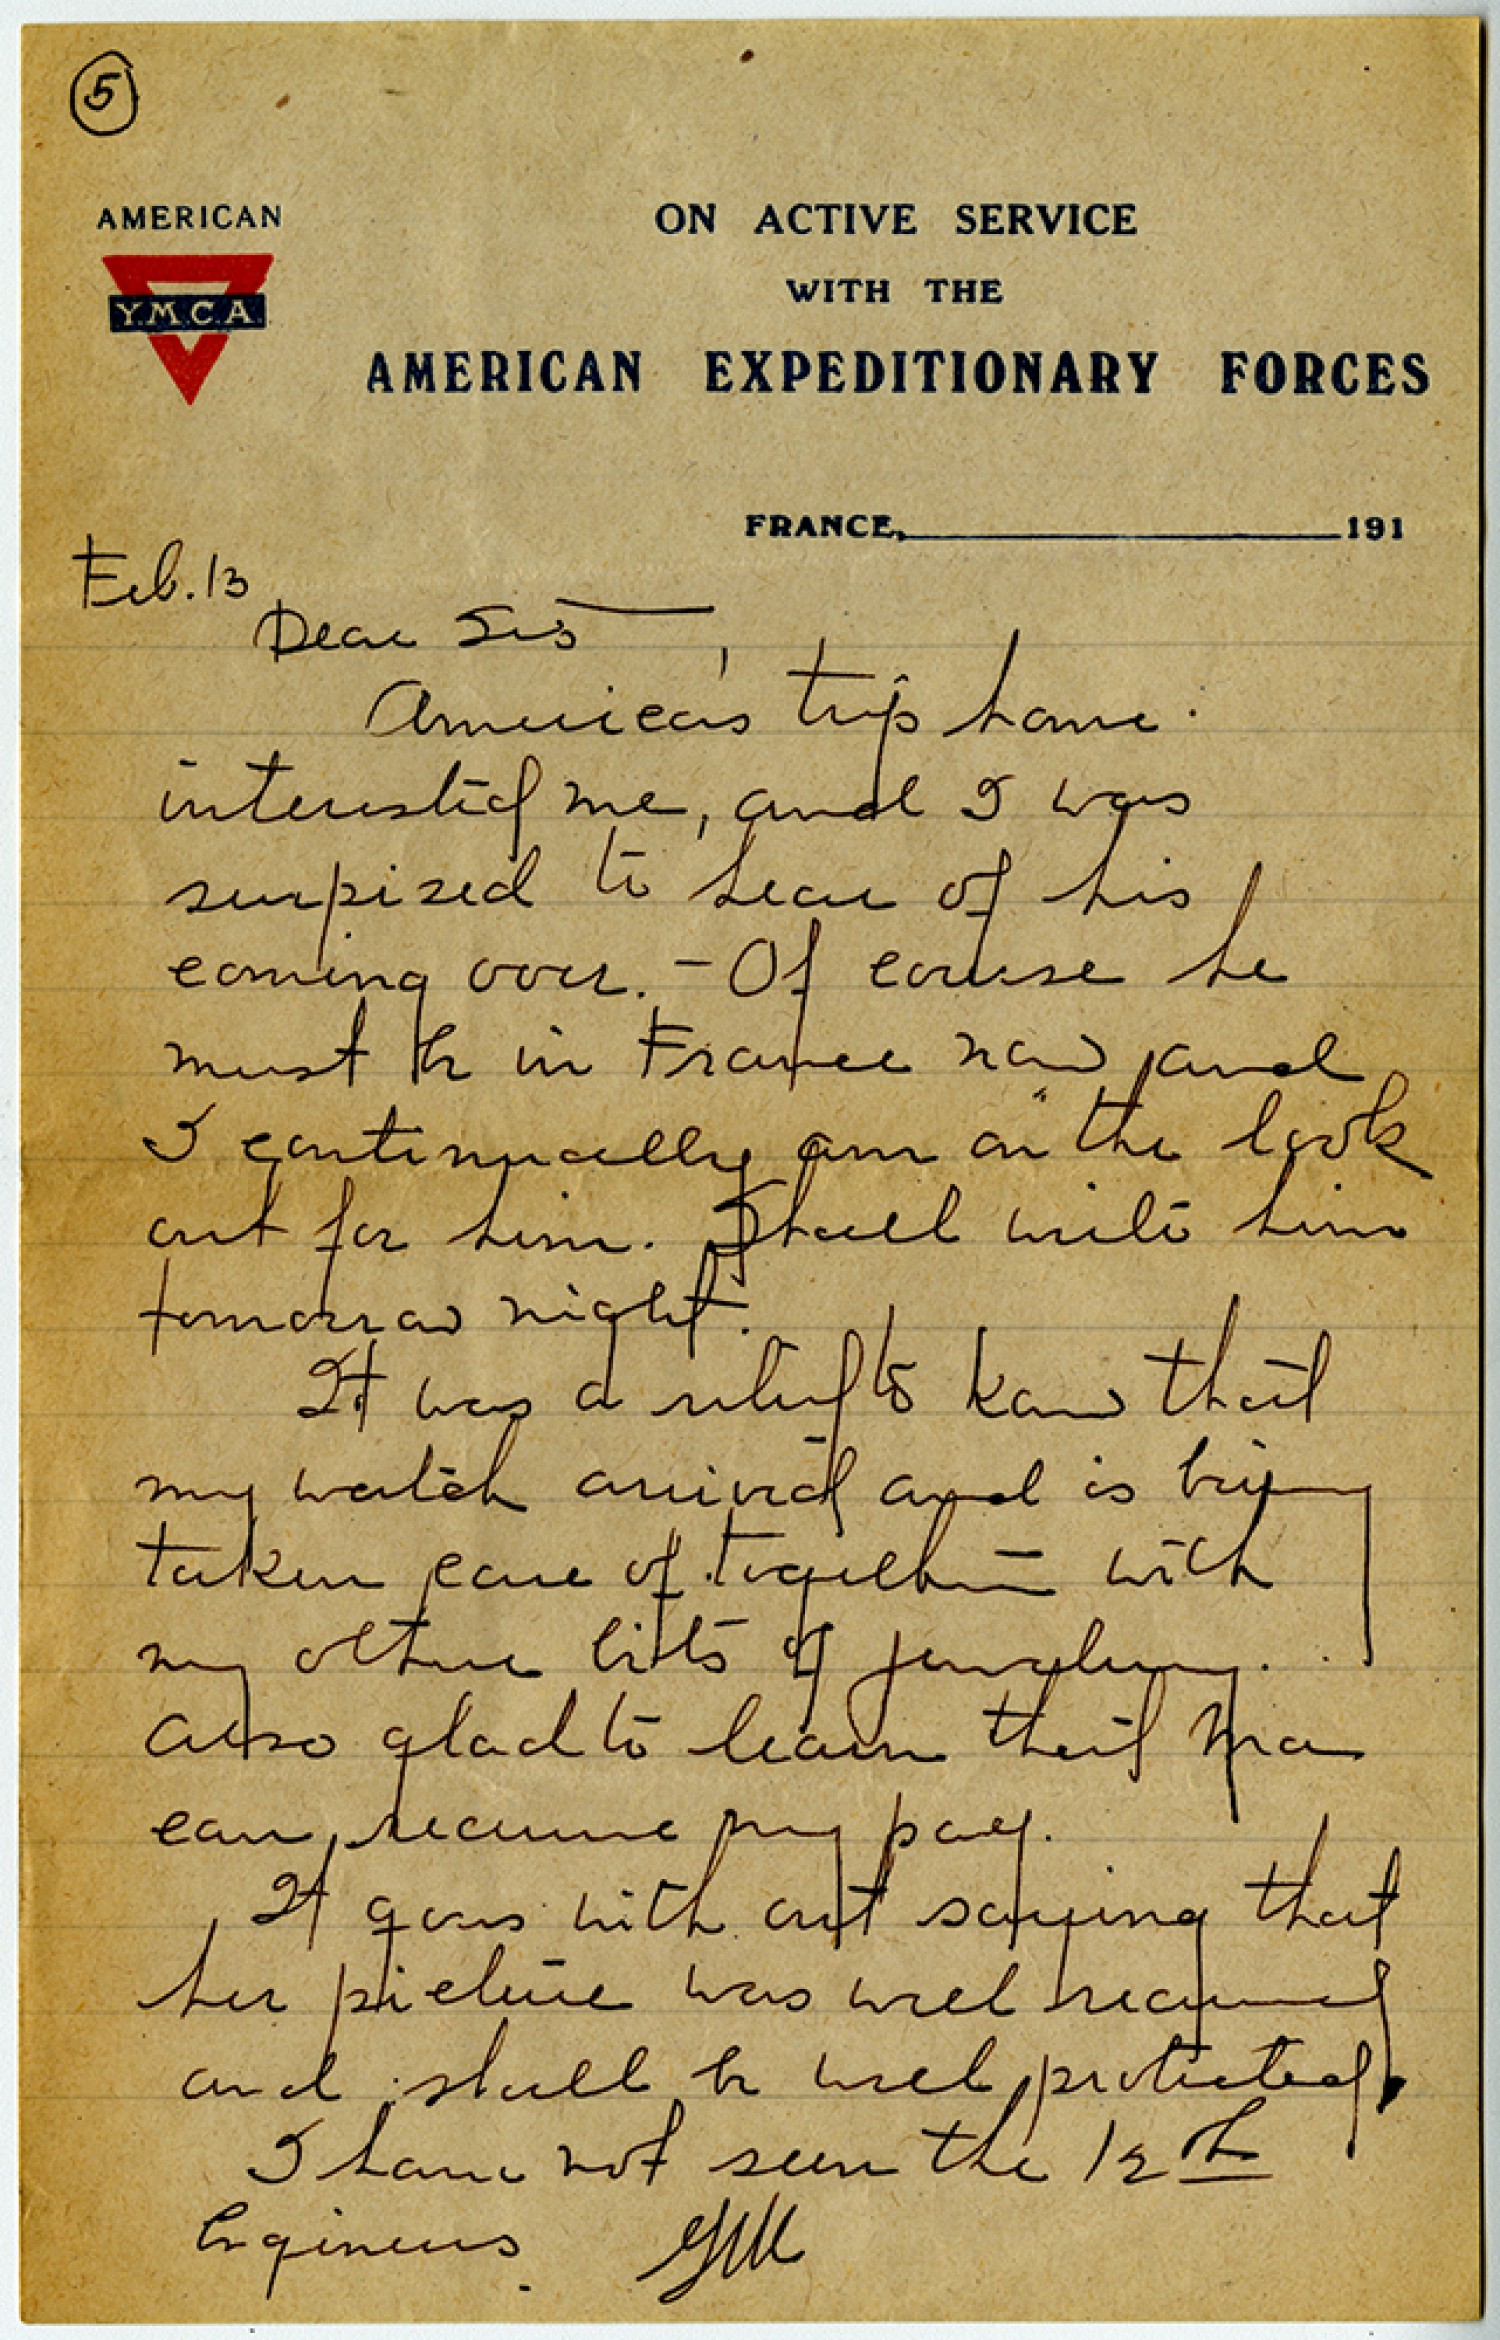 5
AMERICAN
Y.M.C.A.
ON ACTIVE SERVICE
WITH THE
AMERICAN EXPEDITIONARY FORCES
FRANCE, 191
Feb. 13
Dear Sis,
trip home
interested me, and I was
surpized to hear of his
coming over. - Of course he
must be in France now and
I continually am on the look
out for him. Shall write him
tomorrow night.
It was a relief to know that
my watch arrived and is being
taken care of together with
my other bits of jewelery.
Also glad to learn that Ma
can receive my pay.
It goes with out saying that
her picture was well received
and shall be well protected.
I have not seen the 12th
Engineers.